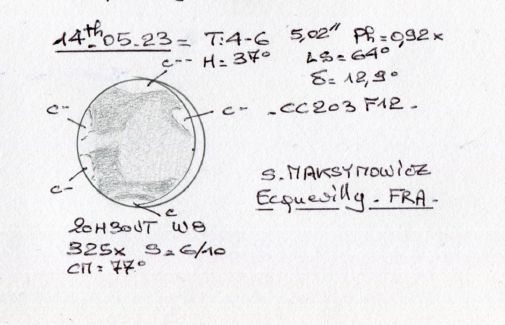 14th.05.23 = T:4-6 5,02" Ph=0,92x
C-- H=37° LS=64°
δ=12,9°
C- C- -CC203 F12-
C-
S.MAKSYMOWICZ
Ecquevilly-FRA-
C
20H30UT W8
325x S=6/10
CM=77°